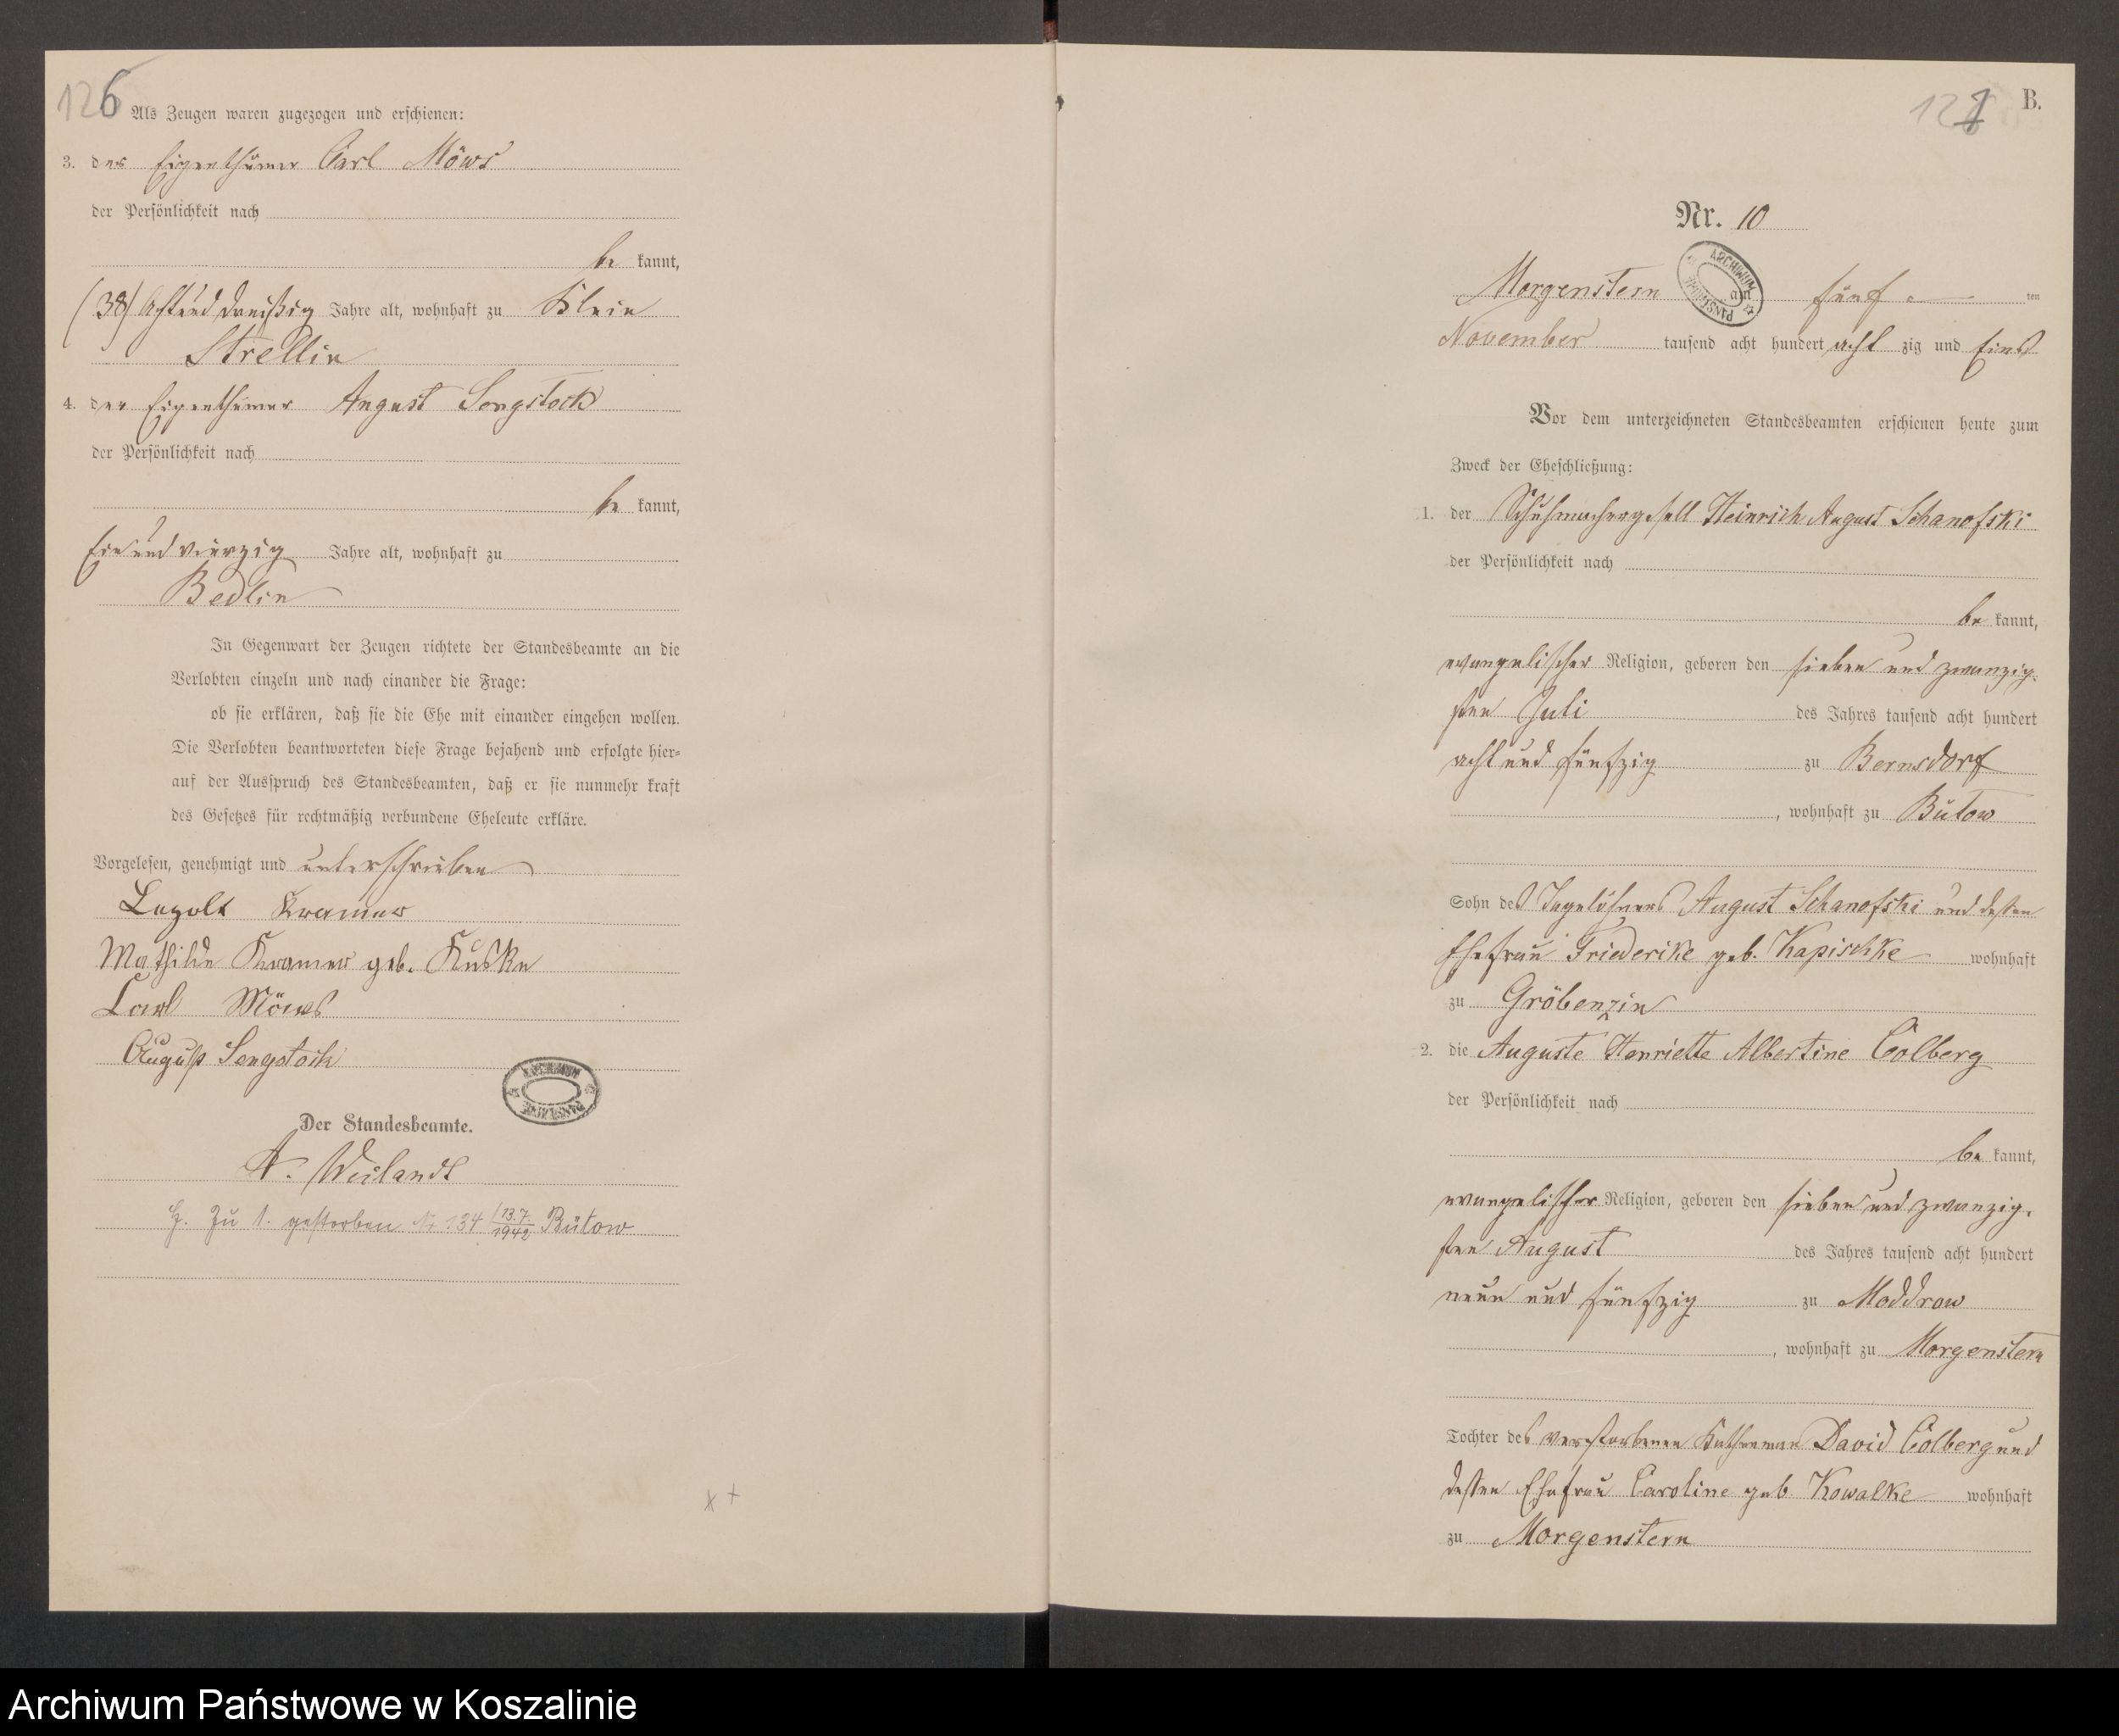 126
Als Zeugen waren zugezogen und erschienen:
3. der Eigenthümer Carl Möws
der Persönlichkeit nach
be kannt,
(38) Achtund dreißig Jahre alt, wohnhaft zu Klein
Strellin
4. der Eigenthümer August Sengstock
der Persönlichkeit nach
be kannt,
Ein und vierzig Jahre alt, wohnhaft zu
Bedlin
In Gegenwart der Zeugen richtete der Standesbeamte an die
Verlobten einzeln und nach einander die Frage:
ob sie erklären, daß sie die Ehe mit einander eingehen wollen.
Die Verlobten beantworteten diese Frage bejahend und erfolgte hier=
auf der Ausspruch des Standesbeamten, daß er sie nunmehr kraft
des Gesetzes für rechtmäßig verbundene Eheleute erkläre.
Vorgelesen, genehmigt und unterschrieben
Lepolt Kramer
Mathilde Kramer geb. Kuske
Carl Möws
August Sengstock
ARCHIWUM PAŃSTWOWE
Der Standesbeamte.
A. Weilandt
H. Zu 1. gestorben Nr 134 / 13.7. 1942 Bütow
B.
Nr. 10
Morgenstern am fünf ten
ARCHIWUM PAŃSTWOWE
November tausend acht hundert acht zig und Eins
Vor dem unterzeichneten Standesbeamten erschienen heute zum
Zweck der Eheschließung:
1. der Schuhmachergesell Heinrich August Schanofski
der Persönlichkeit nach
be kannt,
evangelischer Religion, geboren den sieben und zwanzig-
sten Juli des Jahres tausend acht hundert
acht und fünfzig zu Bernsdorf
, wohnhaft zu Bütow
Sohn des Tagelöhners August Schanofski und dessen
Ehefrau Friederike geb. Kapischke wohnhaft
zu Gröbenzin
2. die Auguste Henriette Albertine Colberg
der Persönlichkeit nach
be kannt,
evangelischer Religion, geboren den sieben und zwanzig-
sten August des Jahres tausend acht hundert
neun und fünfzig zu Moddrow
, wohnhaft zu Morgenstern
Tochter des verstorbenen Kathenmann David Colberg und
dessen Ehefrau Caroline geb Kowalke wohnhaft
zu Morgenstern
Archiwum Państwowe w Koszalinie